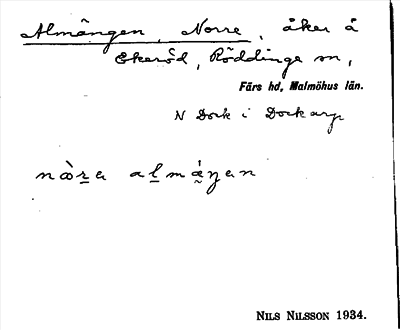 Almången, Norre, åker å
Ekeröd, Röddinge sn,
Färs hd, Malmöhus län.
N Dork i Dorkarp
nòra almáŋen
Nils Nilsson 1934.